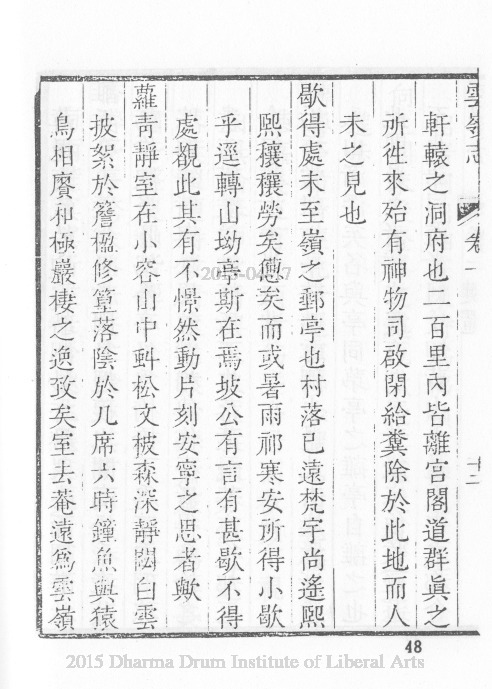 雲嶺志 卷一 十二
軒轅之洞府也三百里內皆離宮閣道群眞之
所徃來殆有神物司啟閉給糞除於此地而人
未之見也
歇得處未至嶺之郵亭也村落已遠梵宇尚遙熙
熙穰穰勞矣憊矣而或暑雨祁寒安所得小歇
乎逕轉山坳亭斯在焉坡公有言有甚歇不得
處覩此其有不憬然動片刻安寧之思者歟
蘿青靜室在小容山中虯松文柀森深靜閟白雲
披絮於簷楹修篁落陰於几席六時鐘魚與猿
鳥相賡和極巖棲之逸致矣室去菴遠爲雲嶺
48
2015 Dharma Drum Institute of Liberal Arts